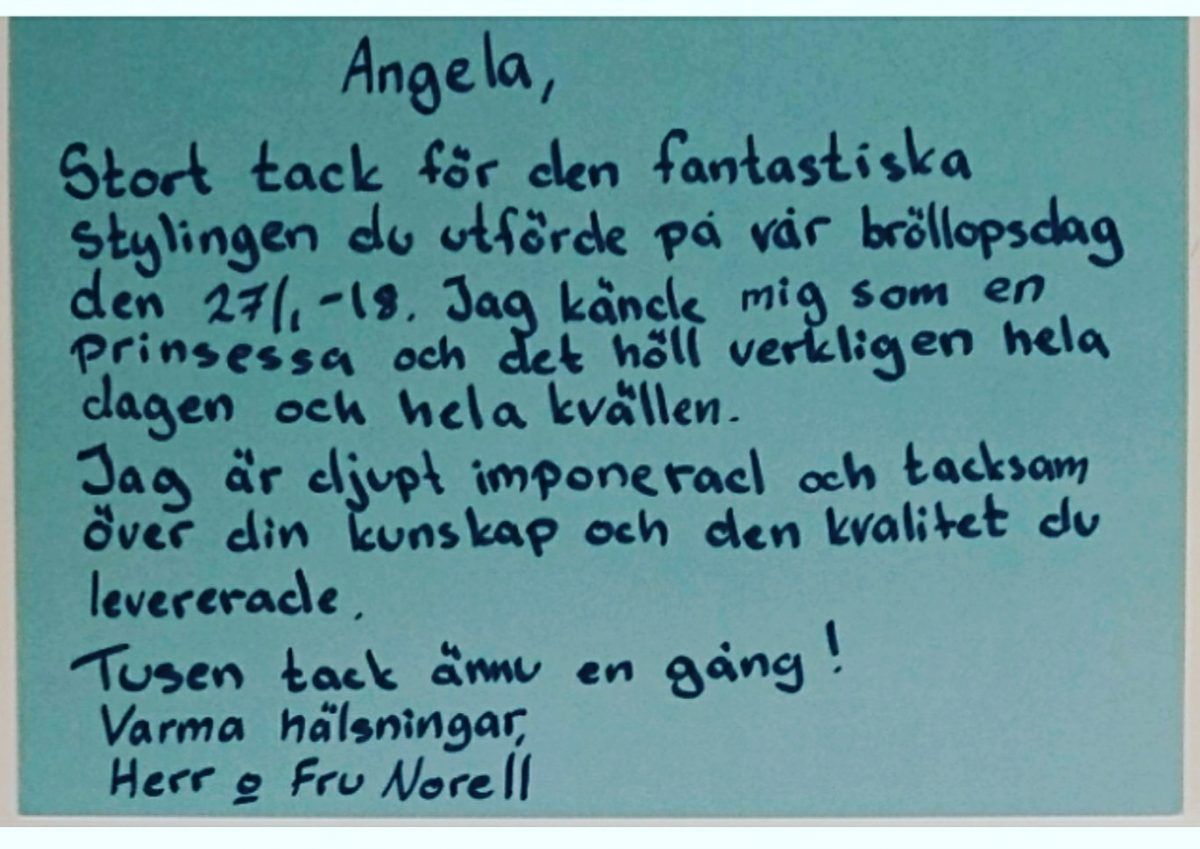 Angela,
Stort tack för den fantastiska
stylingen du utförde på vår bröllopsdag
den 27/1-18. Jag kände mig som en
prinsessa och det höll verkligen hela
dagen och hela kvällen.
Jag är djupt imponerad och tacksam
över din kunskap och den kvalitet du
levererade.
Tusen tack ännu en gång!
Varma hälsningar,
Herr o Fru Norell